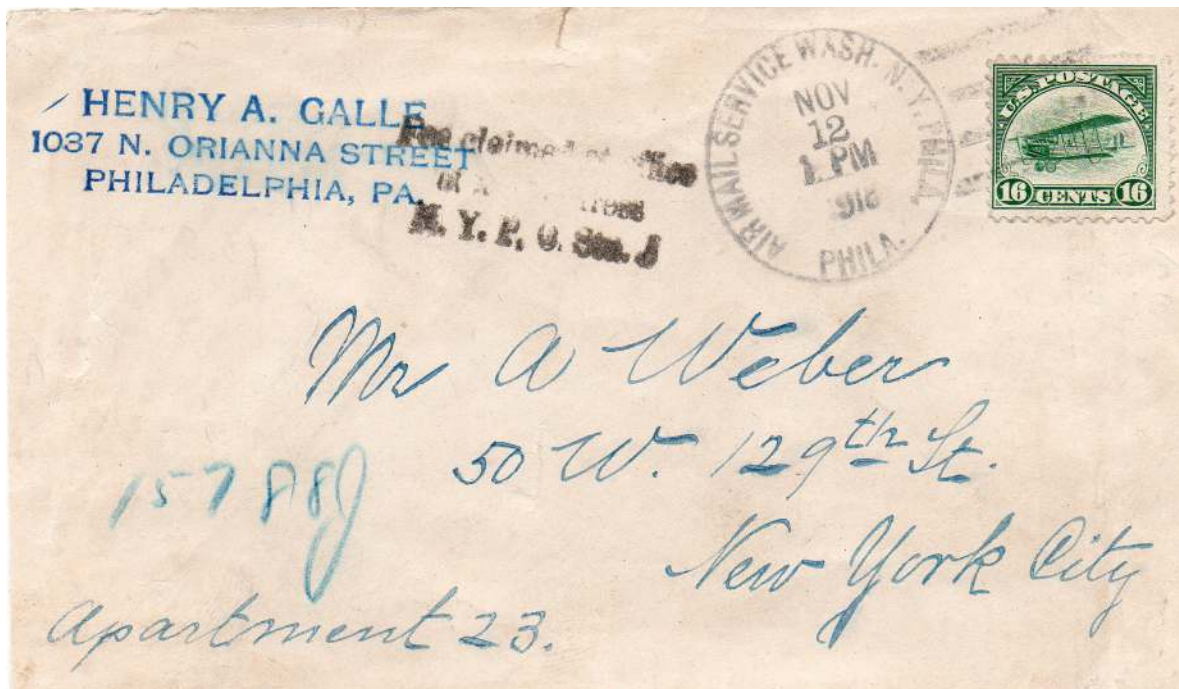 HENRY A. GALLE
1037 N. ORIANNA STREET
PHILADELPHIA, PA.
Fee claimed at office
of
N. Y. P. O. Sta. J
AIR MAIL SERVICE WASH. N. Y. PHILA.
NOV
12
1 PM
1918
PHILA.
U.S. POSTAGE
16 CENTS 16
Mr A Weber
50 W. 129th St.
New York City
15788J
Apartment 23.